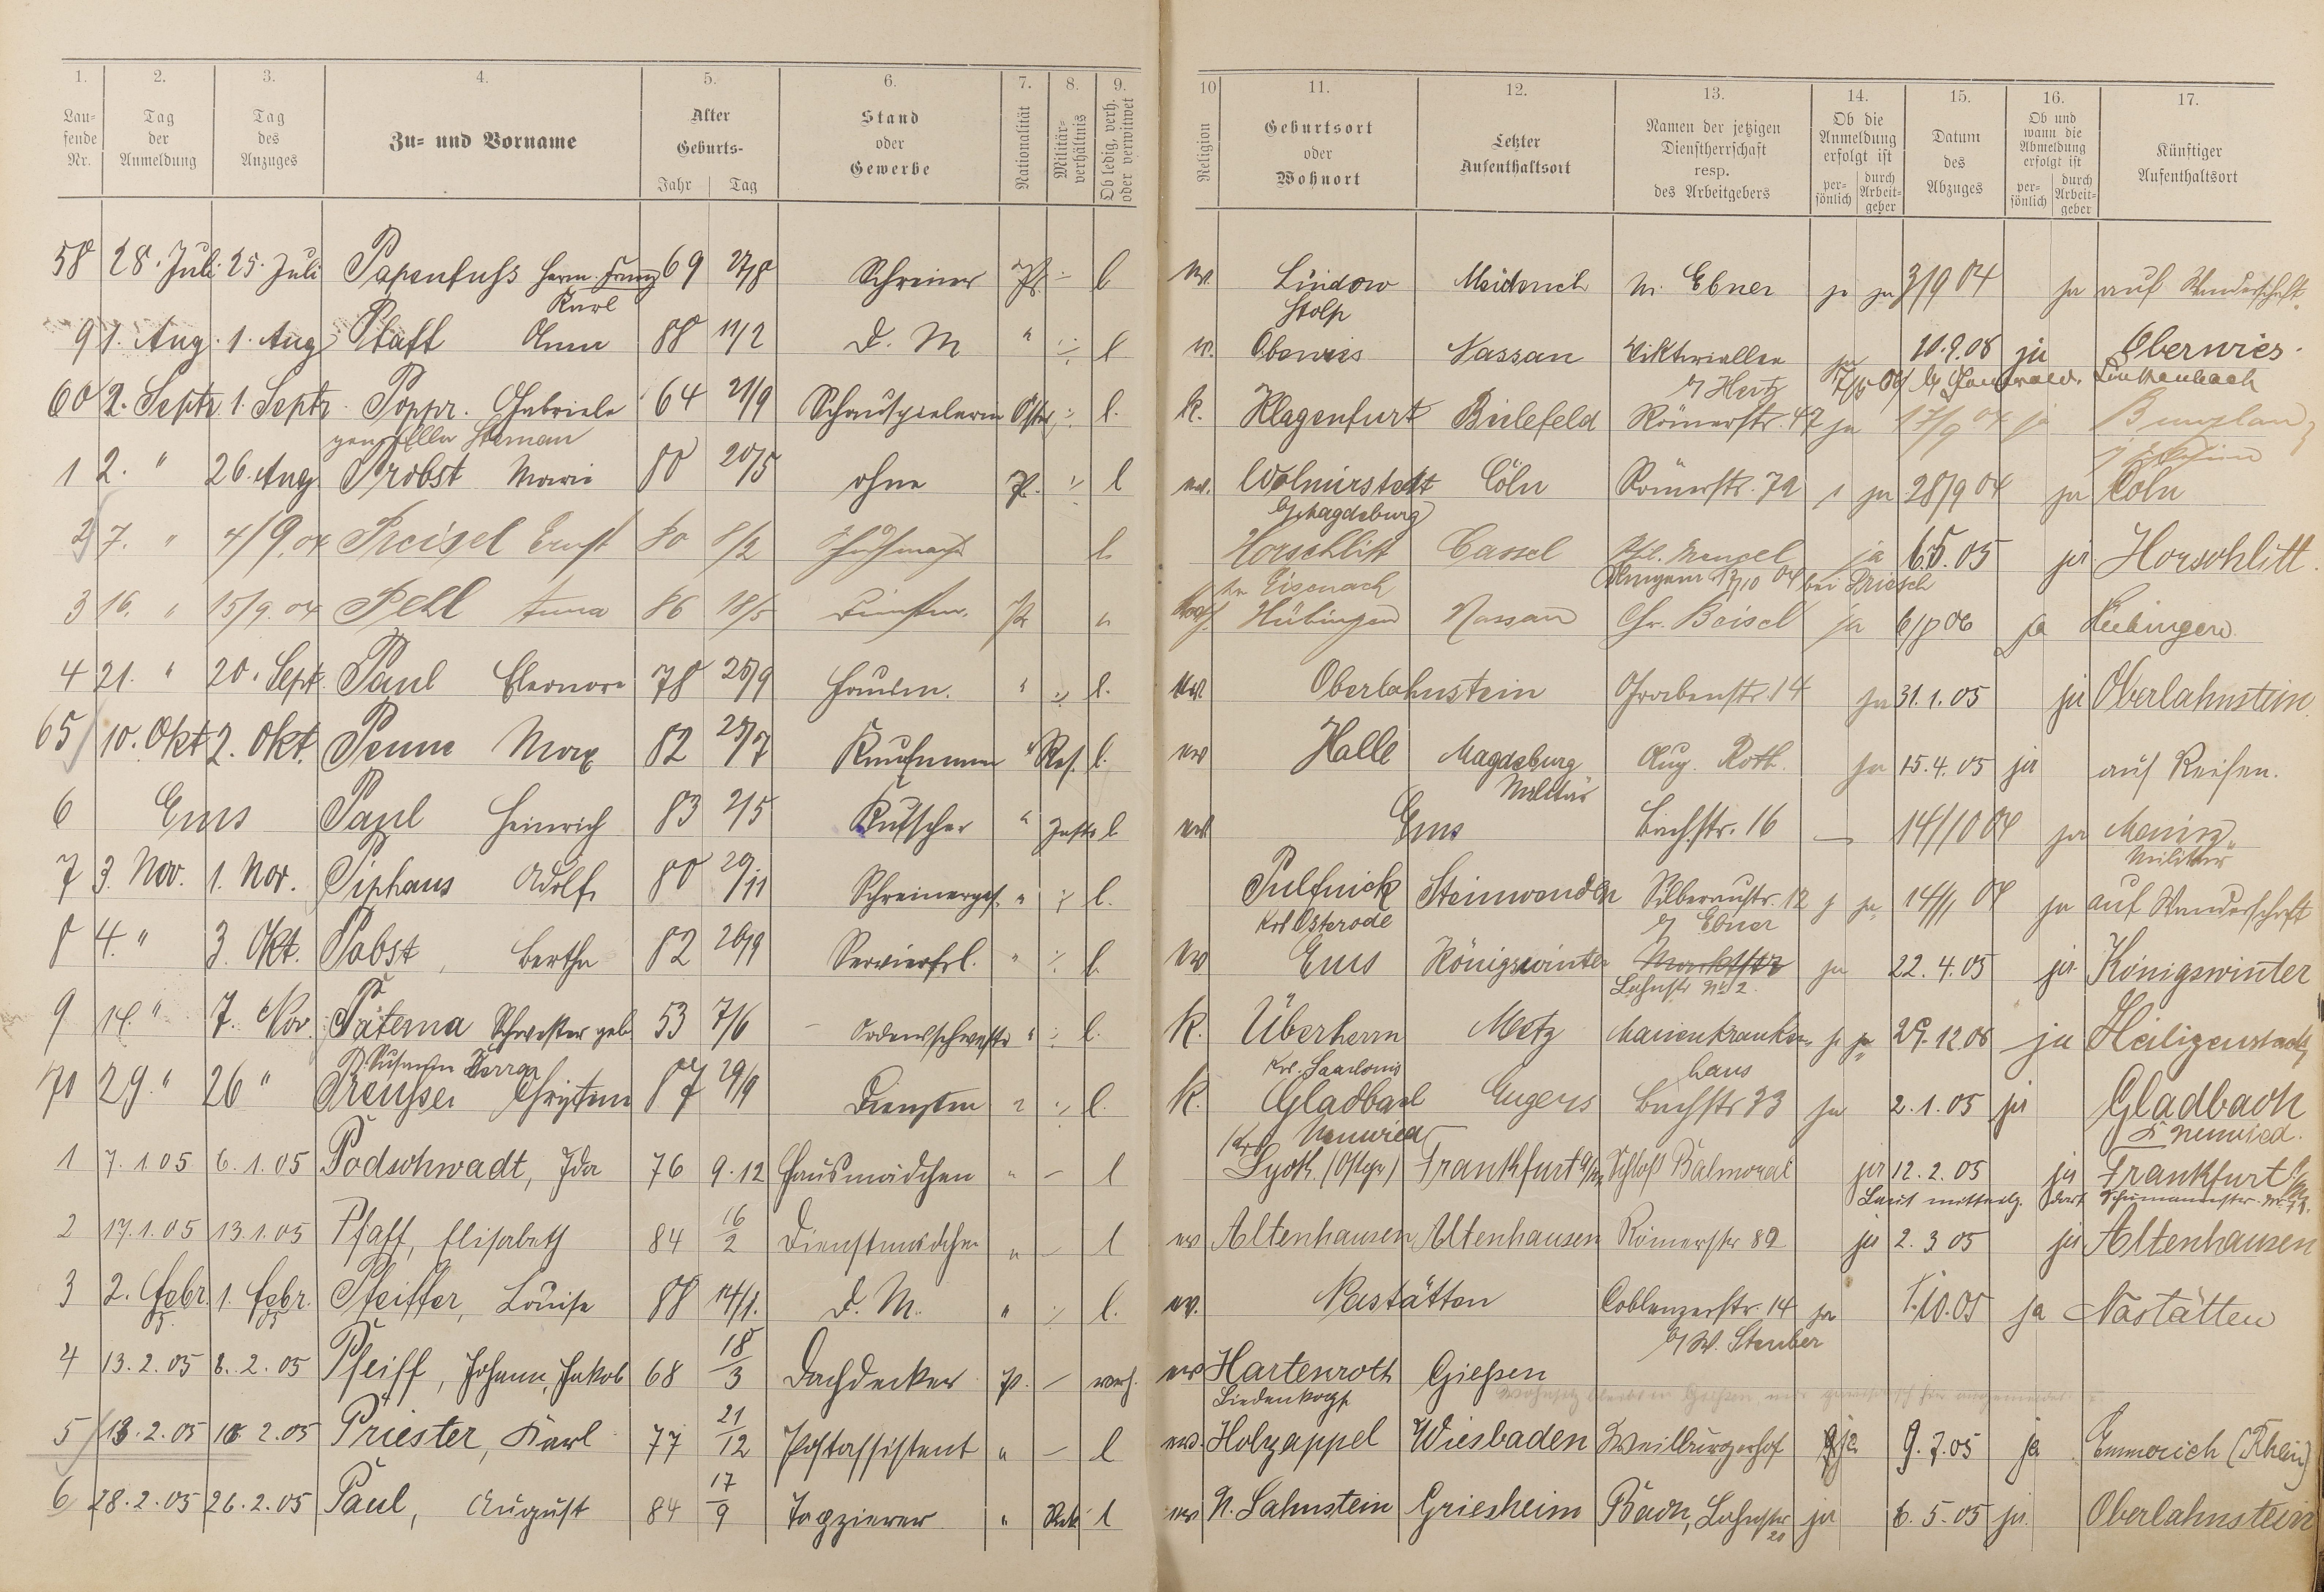 1. 2. 3. 4. 5. 6. 7. 8. 9. 10 11. 12. 13. 14. 15. 16. 17.
Lau-
fende
Nr.
Tag
der
Anmeldung
Tag
des
Anzuges
Zu- und Vorname
Alter
Geburts-
Jahr Tag
Stand
oder
Gewerbe
Nationalität
Militär-
verhältnis
Ob ledig, verh.
oder verwitwet
Religion
Geburtsort
oder
Wohnort
Letzter
Aufenthaltsort
Namen der jetzigen
Dienstherrschaft
resp.
des Arbeitgebers
Ob die
Anmeldung
erfolgt ist
per-
sönlich
durch
Arbeit-
geber
Datum
des
Abzuges
Ob und
wann die
Abmeldung
erfolgt ist
per-
sönlich
durch
Arbeit-
geber
Künftiger
Aufenthaltsort
58 28. Juli 25. Juli Papenfuss Herm. Franz 69 27/8 Schreiner Pr. l ev. Lindow M. Ebner ja ja 3/9 04 ja auf Wanderschaft
Karl Stolp
9 1. Aug. 1. Aug Pfaff Anna 88 11/2 D. M " l ev. Oberwies Nassau Viktoriallee ja 10.9.08 ja Oberwies.
60 2. Septr 1. Septr. Poppr. Gabriele 64 21/9 Schauspielerin Östr. l. k. Klagenfurt Bielefeld Römerstr. 47 ja 17/9 04 ja Bunzlau
1 2. " 26. Aug. Probst Marie 80 20/5 ohne P. l ev. Wolmirstedt Cöln Römerstr. 79 ja 28/9 04 ja Cöln
b/Magdeburg
2 7. " 4/9.04 Preisel Ernst 80 8/2 l. Horschlitt Cassel ja 6.5.05 ja Horschlitt.
Eisenach
3 16. " 15/9.04 Pehl Anna 86 18/5 Hübingen Nassau Chr. Beisel ja 6/8 06 ja Hübingen
4 21. " 20. Sept. Paul Eleonore 78 25/9 " l. ev. Oberlahnstein Grabenstr. 14 ja 31.1.05 ja Oberlahnstein
65 10. Okt 2. Okt. Penne Max 82 29/7 Kaufmann " Res. l. ev Halle Magdeburg Aug. Roth. ja 15.4.05 ja auf Reisen.
Militär
6 Ems Papl Heinrich 83 2/5 Kutscher " l ev Ems Bachstr. 16 — 14/10 04 ja
Militär
7 3. Nov. 1. Nov. Piphaus Adolf 80 29/11 Schreinerges. " l. Pulfnick Silberaustr. 12 ja 14/1 04 ja auf Wanderschaft
Krs Osterode b/ Ebner
8 4. " 3. Okt. Pabst, Bertha 82 26/9 Servierfrl. " l. ev Ems Königswinter Marktstr ja 22.4.05 ja Königswinter
Lahnstr No 2.
9 14. " 7. Nov. Paterna Schwester geb 53 7/6 — Ordensschwester " l. k. Überherrn Metz Marienkranken- ja 29.12.08 ja Heiligenstadt
Krs. Saarlouis haus
70 29. " 26 " Preusser Christine 87 29/9 l. k. Gladbach Engers Bachstr 33 ja 2.1.05 ja Gladbach
Krs Neuwied Neuwied.
1 7.1.05 6.1.05 Podschwadt, Ida 76 9.12 Hausmädchen " — l Lyck. (Ostpr) Frankfurt a/M Schloß Balmoral ja 12.2.05 ja Frankfurt
2 17.1.05 13.1.05 Pfaff, Elisabeth 84 16/2 Dienstmädchen " — l ev Altenhausen Altenhausen Römerstr 82 ja 2.3 05 ja Altenhausen
3 2. Febr. 1. Febr. Pfeiffer, Louise 88 14/1. D. M. " l. ev. Nastätten Coblenzerstr. 14 ja 1.10.05 ja Nastätten
b/ W. Stember
4 13.2.05 8.2.05 Pfeiff, Johann, Jakob 68 18/3 Dachdecker P. — verh. ev Hartenroth Gießen
Biedenkopf
5 13.2.05 10 2.05 Priester, Karl 77 21/12 Postassistent " — l ev. Holzappel Wiesbaden Weilburgerhof ja 9.7.05 ja Emmerich (Rhein)
6 28.2.05 26.2.05 Paul, August 84 17/9 Tapzierer " l ev N. Lahnstein Griesheim Bach, Lahnstr ja 6.5.05 ja. Oberlahnstein
20